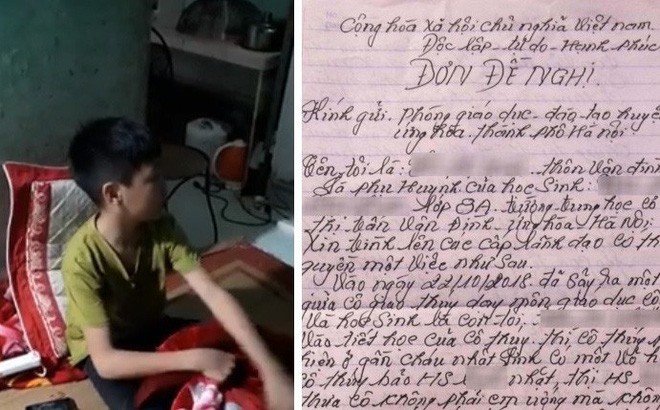 Cộng hòa xã hội chủ nghĩa Việt nam
Độc lập - tự do - Hạnh phúc
ĐƠN ĐỀ NGHỊ
Kính gửi. phòng giáo dục - đào tạo huyện
ứng hòa. thành phố Hà nội.
Tên tôi là: thôn Vân đình
Là phụ Huynh của học Sinh:
lớp 8A. trường trung học cơ
thị trấn Vân Đình - ứng hòa - Hà Nội
Xin trình lên các cấp lãnh đạo có thẩm
quyền một việc như Sau.
Vào ngày 22/10/2018. đã Sảy ra một
giữa cô giáo thúy dạy môn giáo dục cô
Và học Sinh là con tôi.
Vào tiết học của cô thúy. thì cô thúy
hiện ở gần cháu nhất đình có một vỏ
cô thúy bảo HS nhặt, thì HS
thưa cô không phải em uống mà không